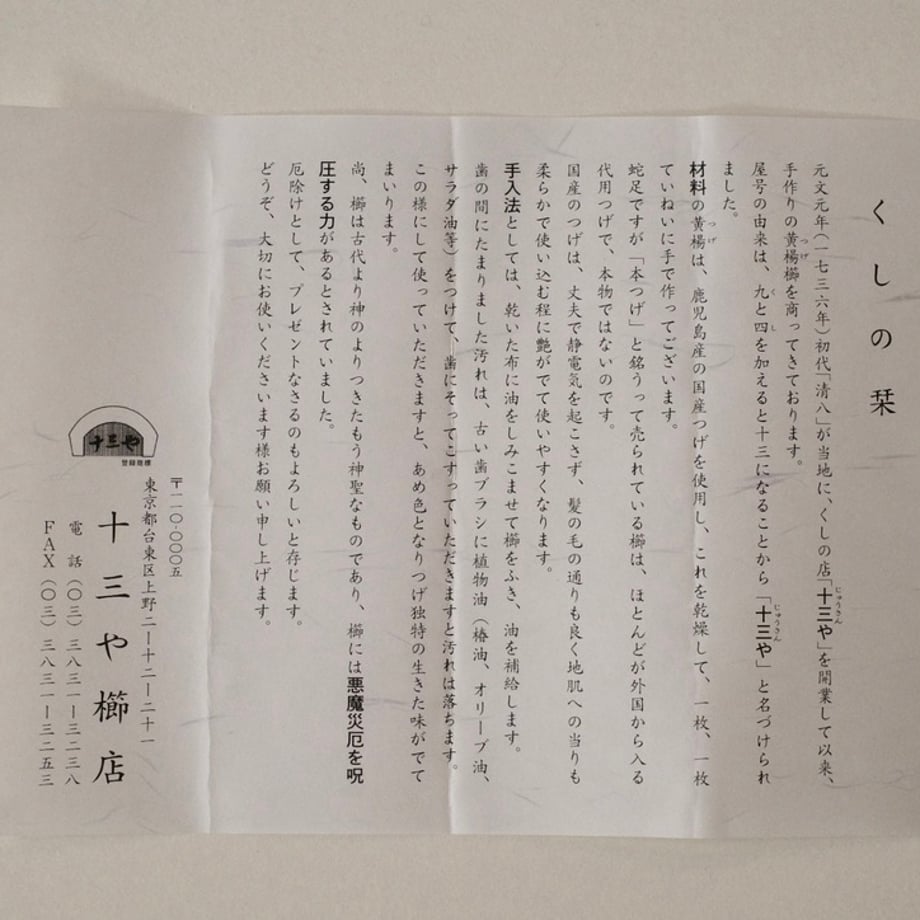 くしの栞
元文元年(一七三六年)初代「清八」が当地に、くしの店「十三や」を開業して以来、
手作りの黄楊櫛を商ってきております。
屋号の由来は、九と四を加えると十三になることから「十三や」と名づけられ
ました。
材料の黄楊は、鹿児島産の国産つげを使用し、これを乾燥して、一枚、一枚
ていねいに手で作ってございます。
蛇足ですが「本つげ」と銘うって売られている櫛は、ほとんどが外国から入る
代用つげで、本物ではないのです。
国産のつげは、丈夫で静電気を起こさず、髪の毛の通りも良く地肌への当りも
柔らかで使い込む程に艶がでて使いやすくなります。
手入法としては、乾いた布に油をしみこませて櫛をふき、油を補給します。
歯の間にたまりました汚れは、古い歯ブラシに植物油(椿油、オリーブ油、
サラダ油等)をつけて、歯にそってこすっていただきますと汚れは落ちます。
この様にして使っていただきますと、あめ色となりつげ独特の生きた味がでて
まいります。
尚、櫛は古代より神のよりつきたもう神聖なものであり、櫛には悪魔災厄を呪
圧する力があるとされていました。
厄除けとして、プレゼントなさるのもよろしいと存じます。
どうぞ、大切にお使いくださいます様お願い申し上げます。
十三や
登録商標
〒一一〇-〇〇〇五
東京都台東区上野二ー十二ー二十一
十三や櫛店
電話(〇三)三八三一ー三二三八
FAX(〇三)三八三一ー三二五三